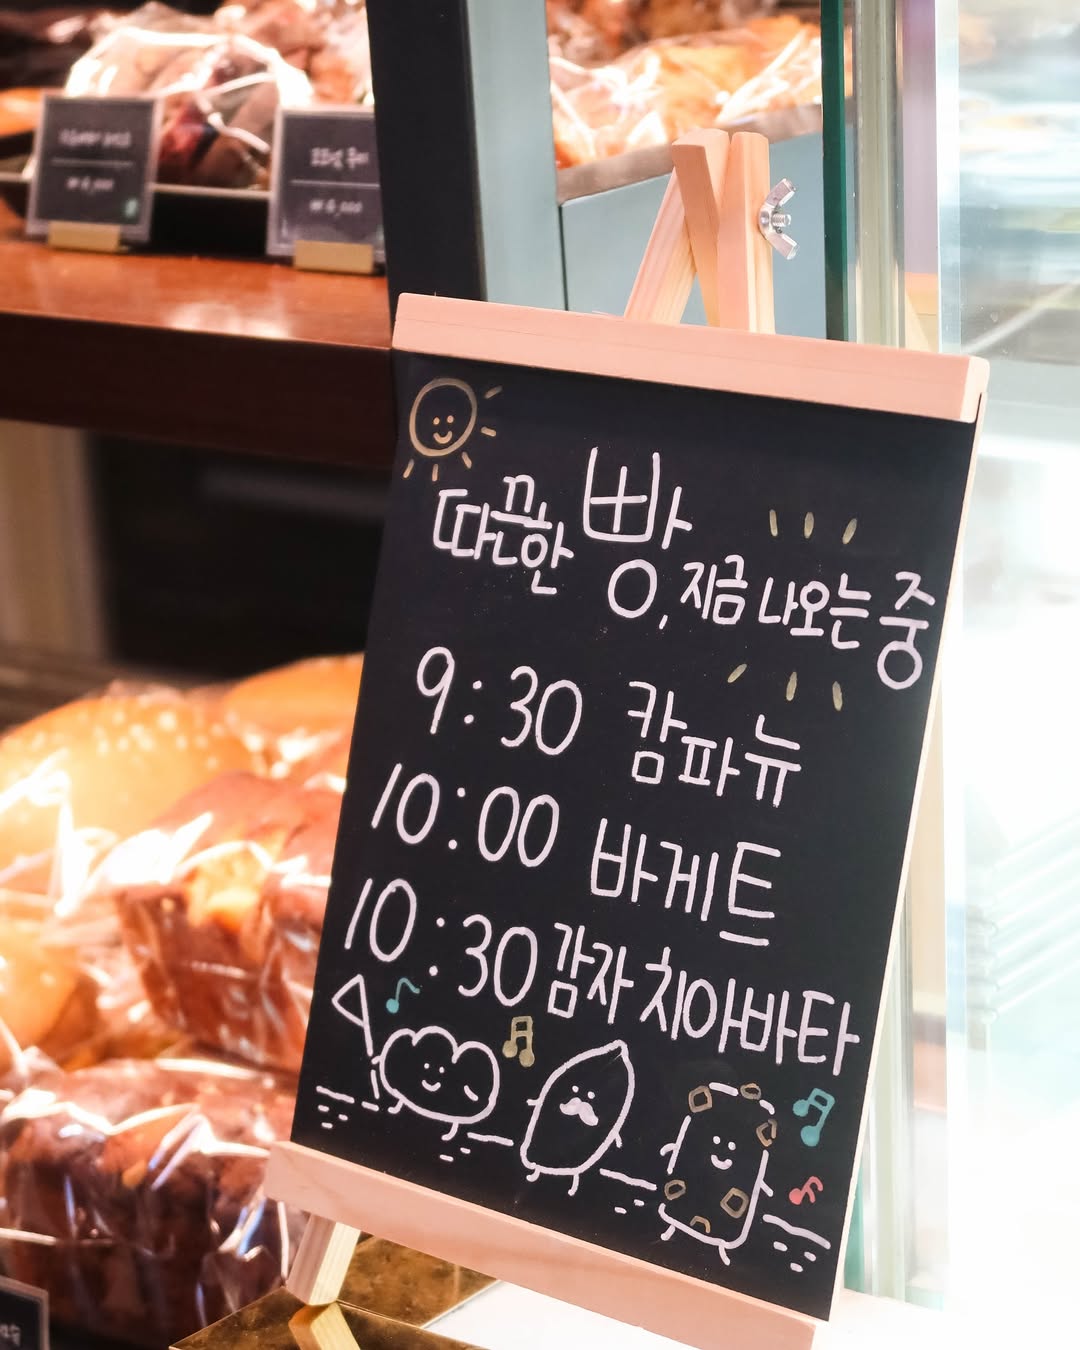 따끈한 빵, 지금 나오는 중
9:30 캄파뉴
10:00 바게트
10:30 감자 치아바타